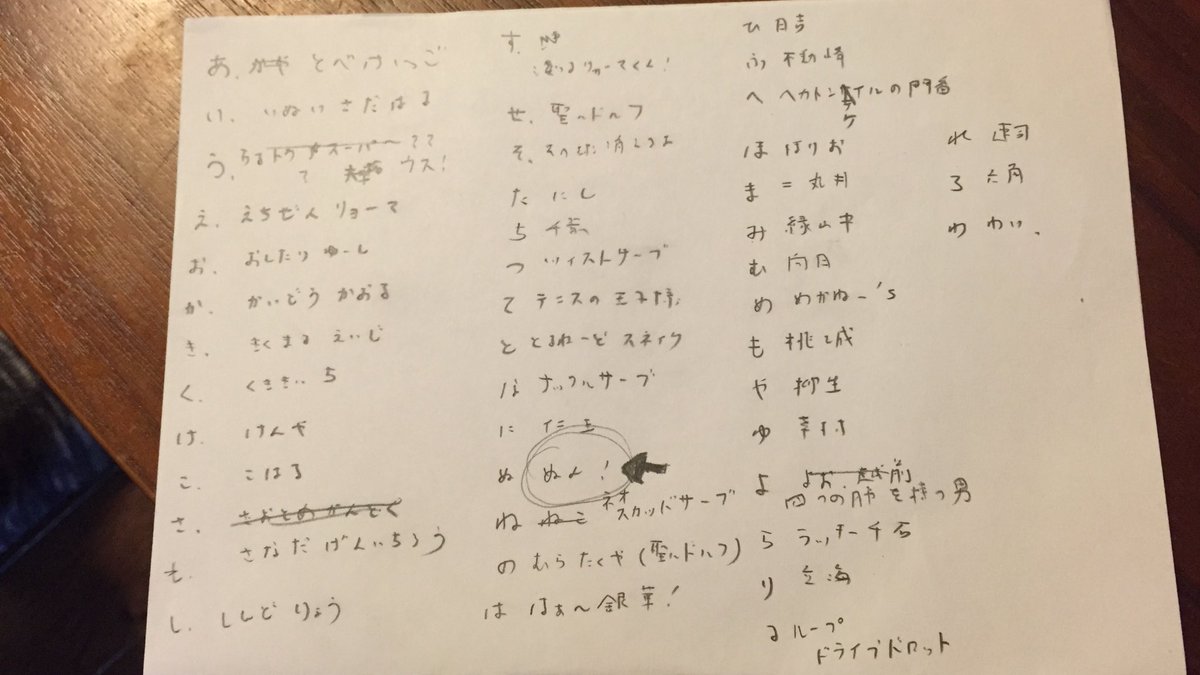 あ. とべけいご
い. いぬいさだはる
う.
ウス!
え. えちぜんリョーマ
お. おしたりゆーし
か. かいどうかおる
き. きくまるえいじ
く.
け. けんや
こ. こはる
さ. さおとめかんとく
さなだげんいちろう
し. ししどりょう
す.
リョーマくん!
せ. 聖ルドルフ
そ.
た にし
ち 千歳
つ ツイストサーブ
て テニスの王子様
と とるねーどスネイク
な ナックルサーブ
に 仁王
ぬ ぬよ!
ね ねこ ネオスカッドサーブ
の むらたくや(聖ルドルフ)
は はぁ〜銀華!
ひ 日吉
ふ 不動峰
へ ヘカトンケイルの門番
ほ ほりお
ま 丸井
み 緑山中
む 向日
め めがねー's
も 桃城
や 柳生
ゆ 幸村
よ 越前
四つの肺を持つ男
ら ラッキー千石
り 立海
る ループ
ドライブドロット
れ
ろ 六角
わ わい.